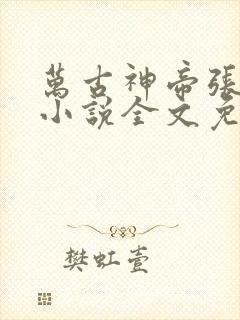 萬古神帝張
小說全文免
樊虹壹